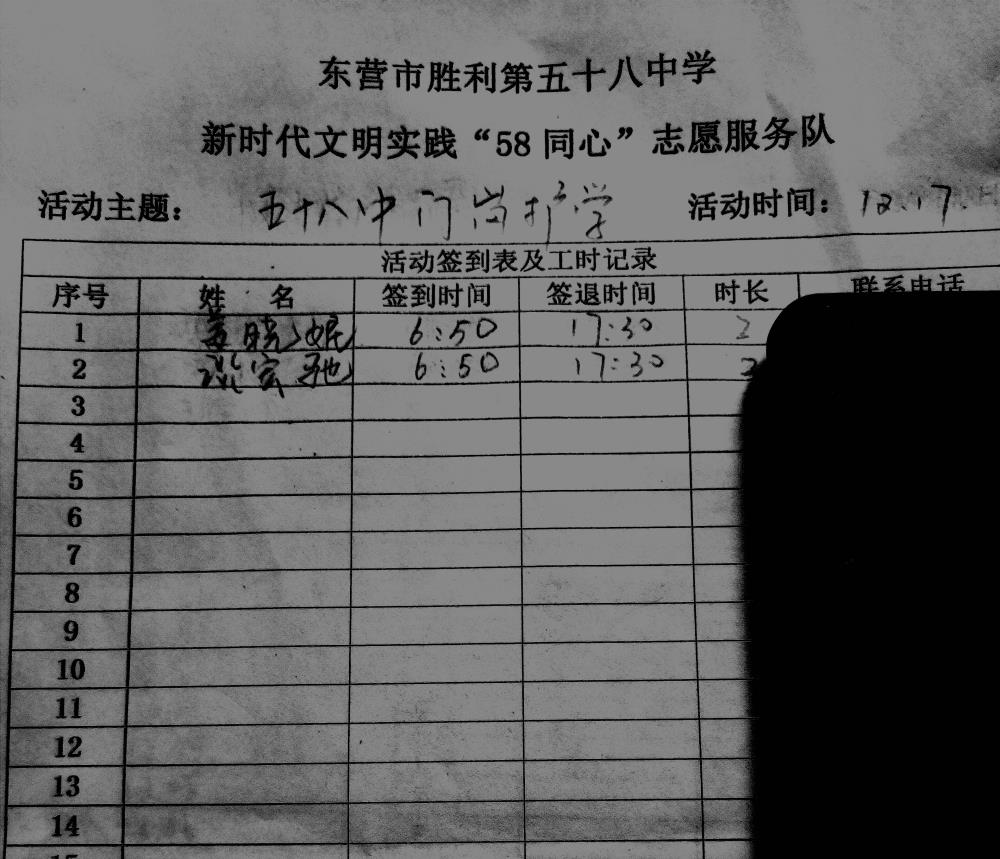 东营市胜利第五十八中学
新时代文明实践“58同心”志愿服务队
活动主题： 五十八中门岗护学 活动时间： 12.17.
活动签到表及工时记录
序号 姓 名 签到时间 签退时间 时长 联系电话
1 晓妮 6:50 17:30 2
2 宏驰 6:50 17:30 2
3
4
5
6
7
8
9
10
11
12
13
14
15